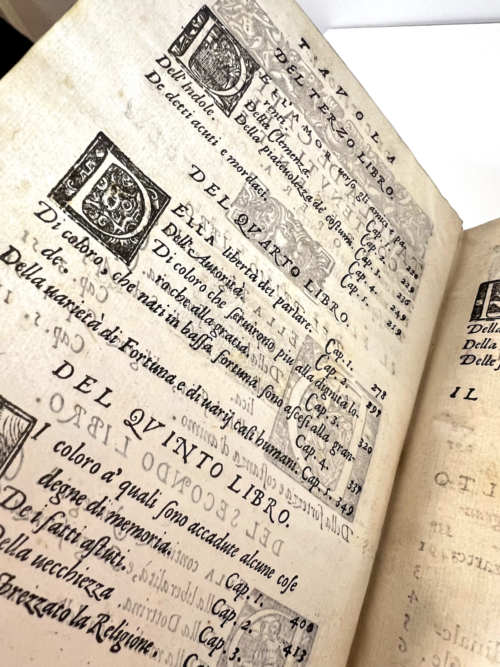 TAVOLA
DEL TERZO LIBRO.
DELL'AMOR verso gli amici e pa-
renti. Cap. 1. 220
Della Clemenza. Cap. 2.
Della piaceuolezza de' costumi. Cap. 3. 236
Dell'Indole. Cap. 4. 249
De detti acuti e mordaci. Cap. 5. 259
DEL QVARTO LIBRO.
DELLA libertà del parlare. Cap. 1. 278
Dell'Autorità. Cap. 2. 291
Di coloro che seruirono piu alla dignità lo-
ro che alla gratia. Cap. 3. 320
Di coloro, che nati in bassa fortuna sono ascesi alla gran-
de. Cap. 4. 337
Della uarietà di Fortuna e di uarij casi humani. Cap. 5. 349
DEL QVINTO LIBRO.
DI coloro a' quali sono accadute alcune cose
degne di memoria. Cap. 1. 400
De i fatti astuti. Cap. 2. 413
Della uecchiezza Cap. 3.
sprezzato la Religione. Cap.
Della
Della
Delle
IL